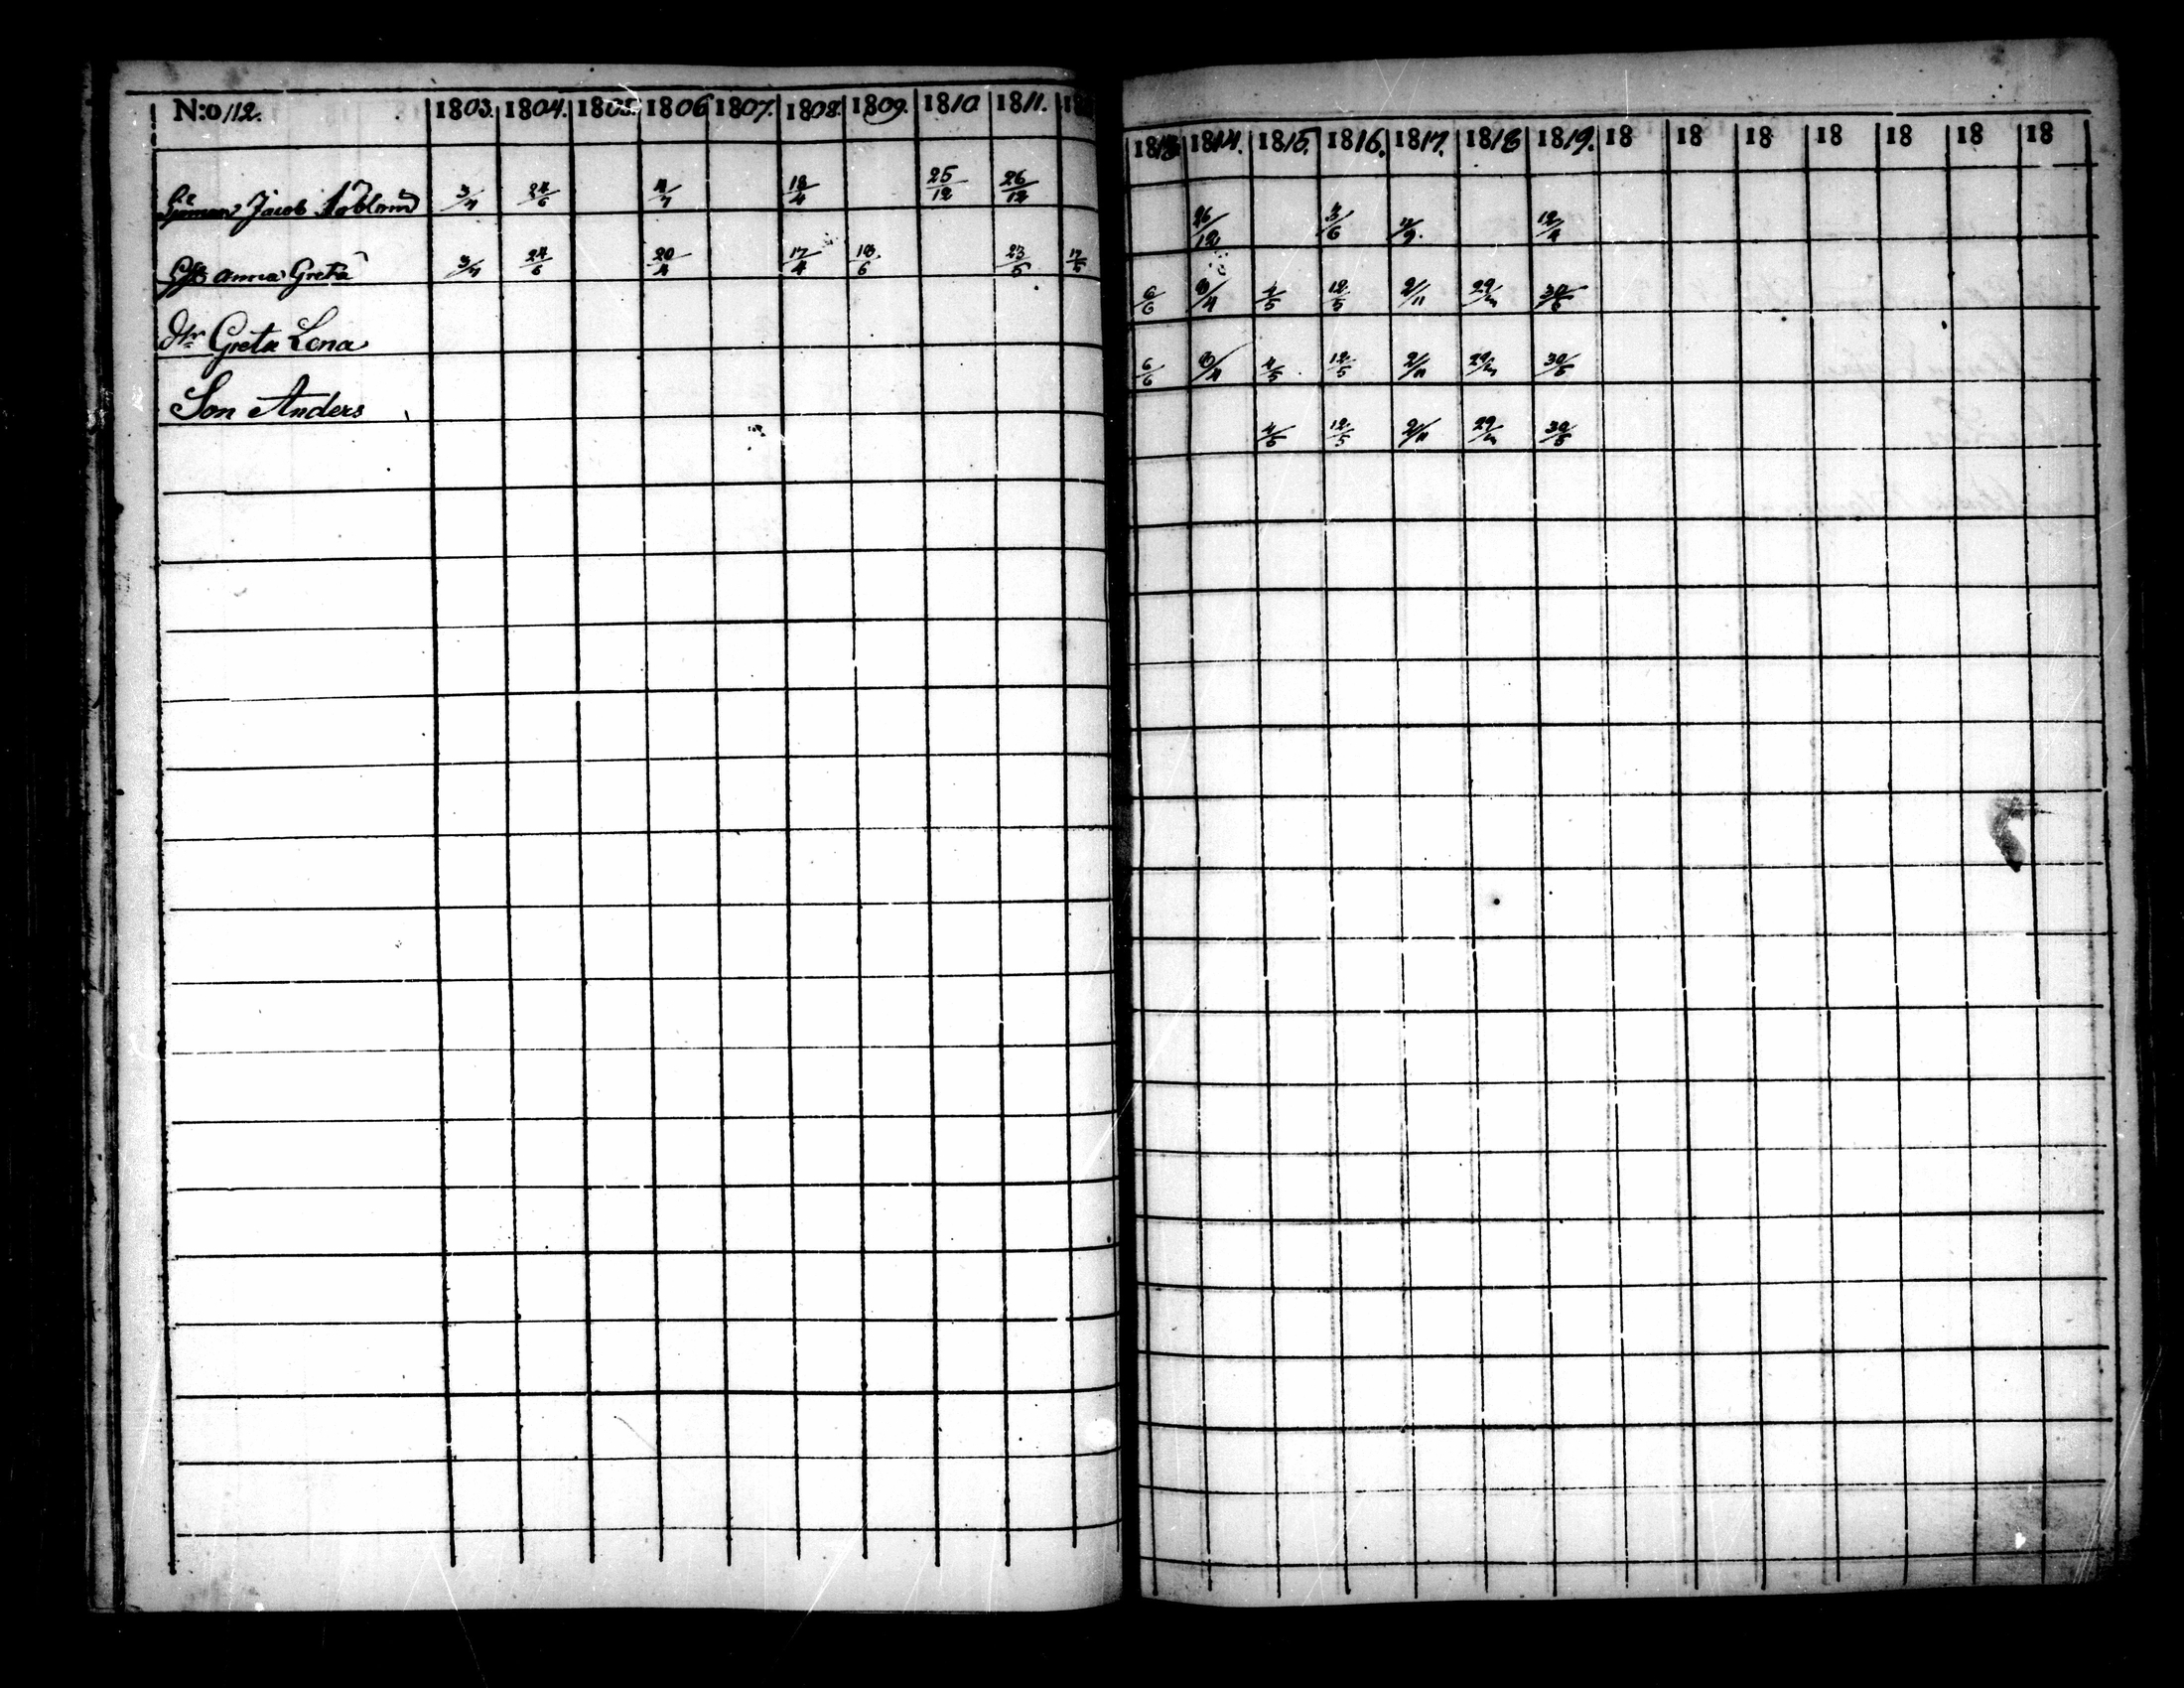 N:o 112. 1803. 1804. 1805. 1806 1807. 1808. 1809. 1810 1811. 18
Jacob 3/7 24/6 4/7 18/4 25/12 26/12
Anna Greta 3/7 24/6 20/4 17/4 18/6 23/5 17/5
Dtr Greta Lena
Son Anders
1813 1814. 1815. 1816. 1817. 1818 1819. 18 18 18 18 18 18 18
26/12 3/6 12/4
6/6 8/4 4/5 12/5 2/11 30/5
6/6 8/4 4/5 12/5 2/11 30/5
4/5 12/5 2/11 30/5